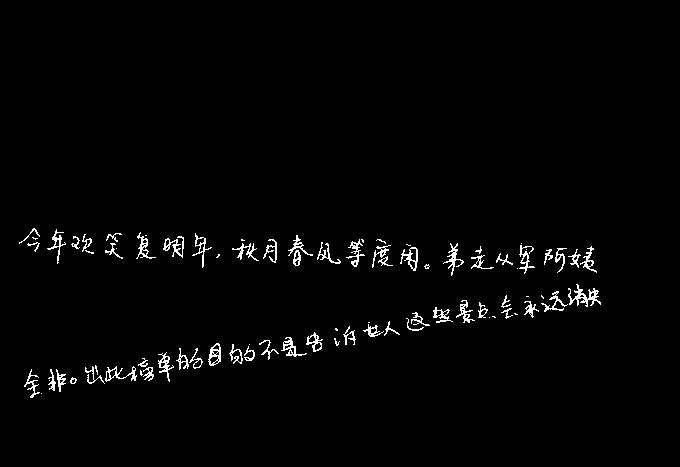 今年欢笑复明年,秋月春风等度闲。弟走从军阿姨
全非。出此榜单的目的不是告诉世人这些景点会永远消失